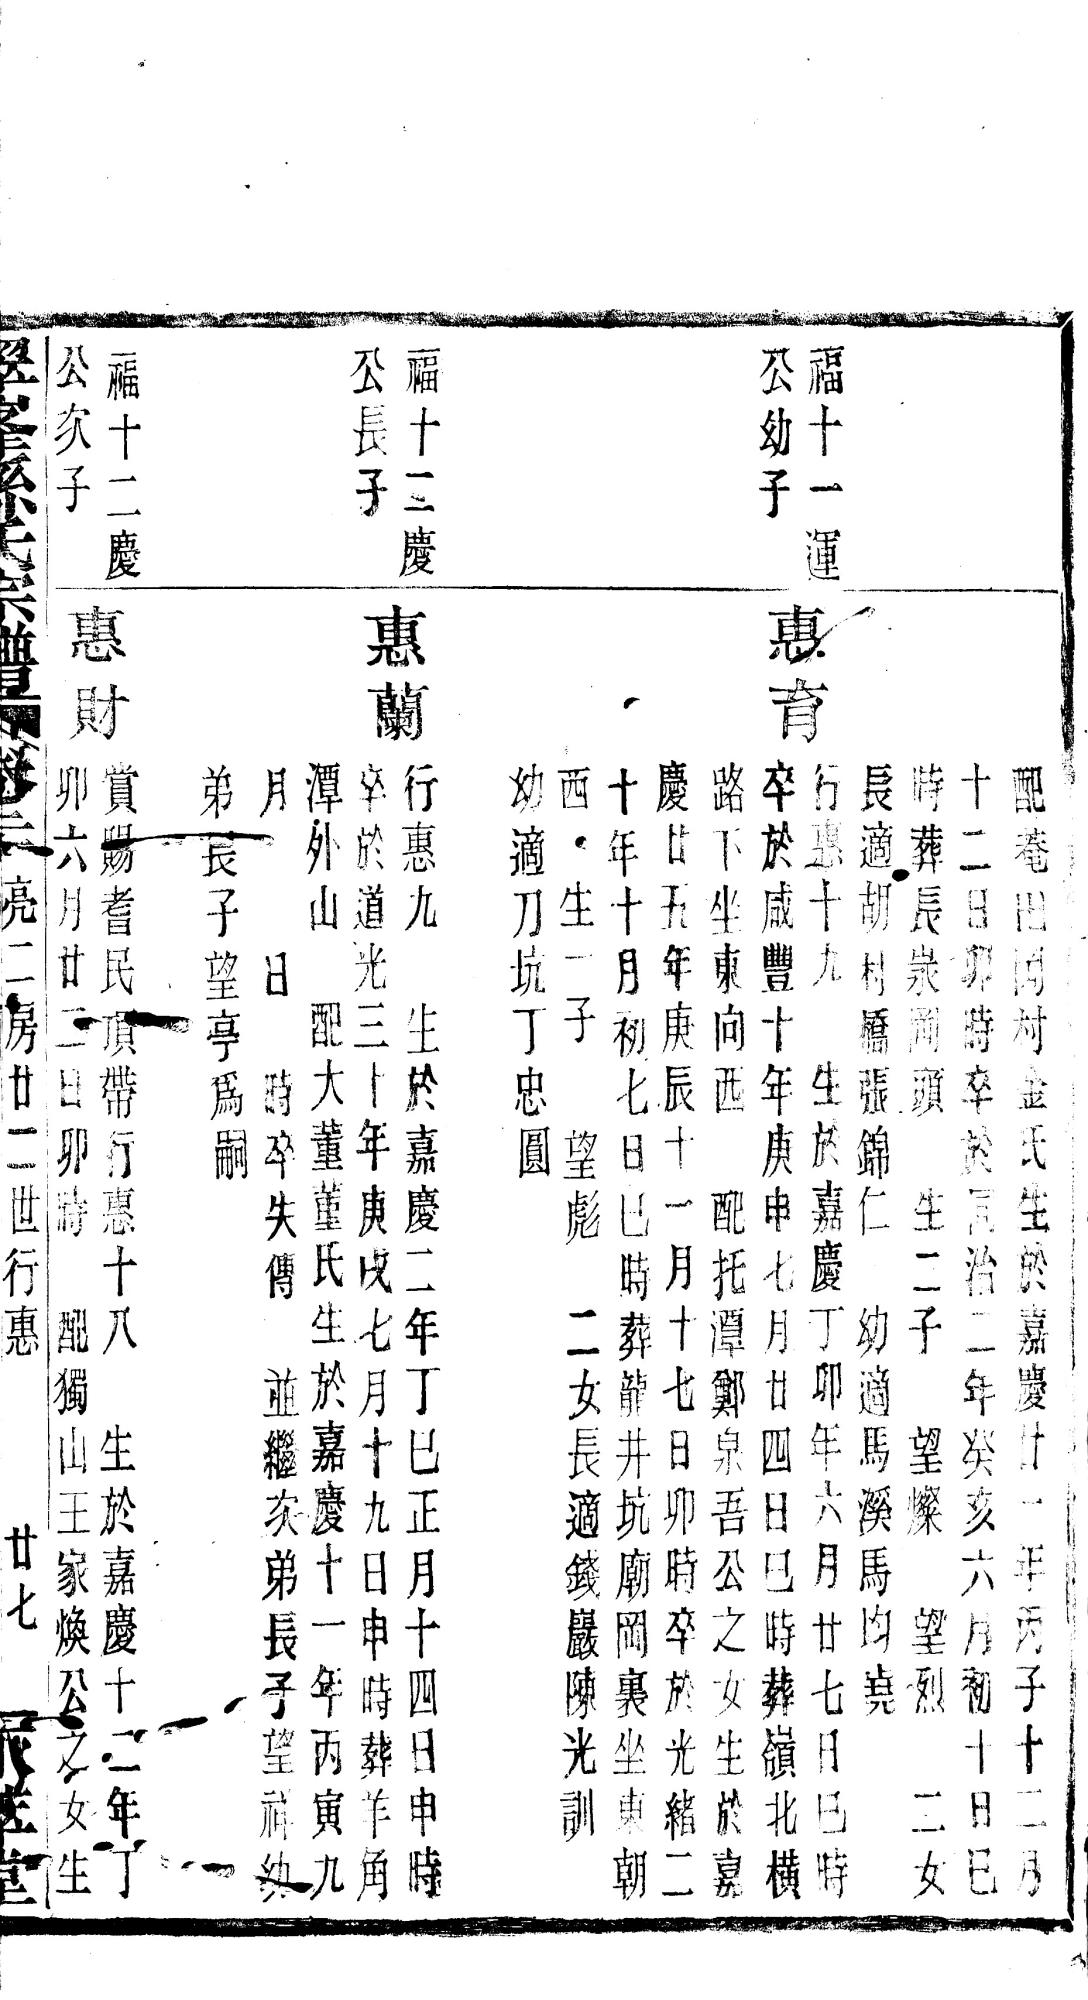 配菴田岡村金氏生於嘉慶廿一年丙子十二月
十二日卯時卒於同治二年癸亥六月初十日巳
時葬長泉岡頭　生二子　望燦　望烈　二女
長適胡村橋張錦仁　幼適馬溪馬均堯
福十一運
公幼子
惠育
行惠十九　生於嘉慶丁卯年六月廿七日巳時
卒於咸豐十年庚申七月廿四日巳時葬嶺北橫
路下坐東向西　配托潭鄭泉吾公之女生於嘉
慶廿五年庚辰十一月十七日卯時卒於光緒二
十年十月初七日巳時葬龍井坑廟岡裏坐東朝
西　生一子　望彪　二女長適錢巖陳光訓
幼適刀坑丁忠圓
福十二慶
公長子
惠蘭
行惠九　生於嘉慶二年丁巳正月十四日申時
卒於道光三十年庚戌七月十九日申時葬羊角
潭外山　配大董董氏生於嘉慶十一年丙寅九
月　日　時卒失傳　並繼次弟長子望祥幼
弟長子望亭爲嗣
福十二慶
公次子
惠財
賞賜耆民頂帶行惠十八　生於嘉慶十二年丁
卯六月廿二日卯時　配獨山王家煥公之女生
孫氏宗譜　亮二房廿二世行惠　廿七　堂